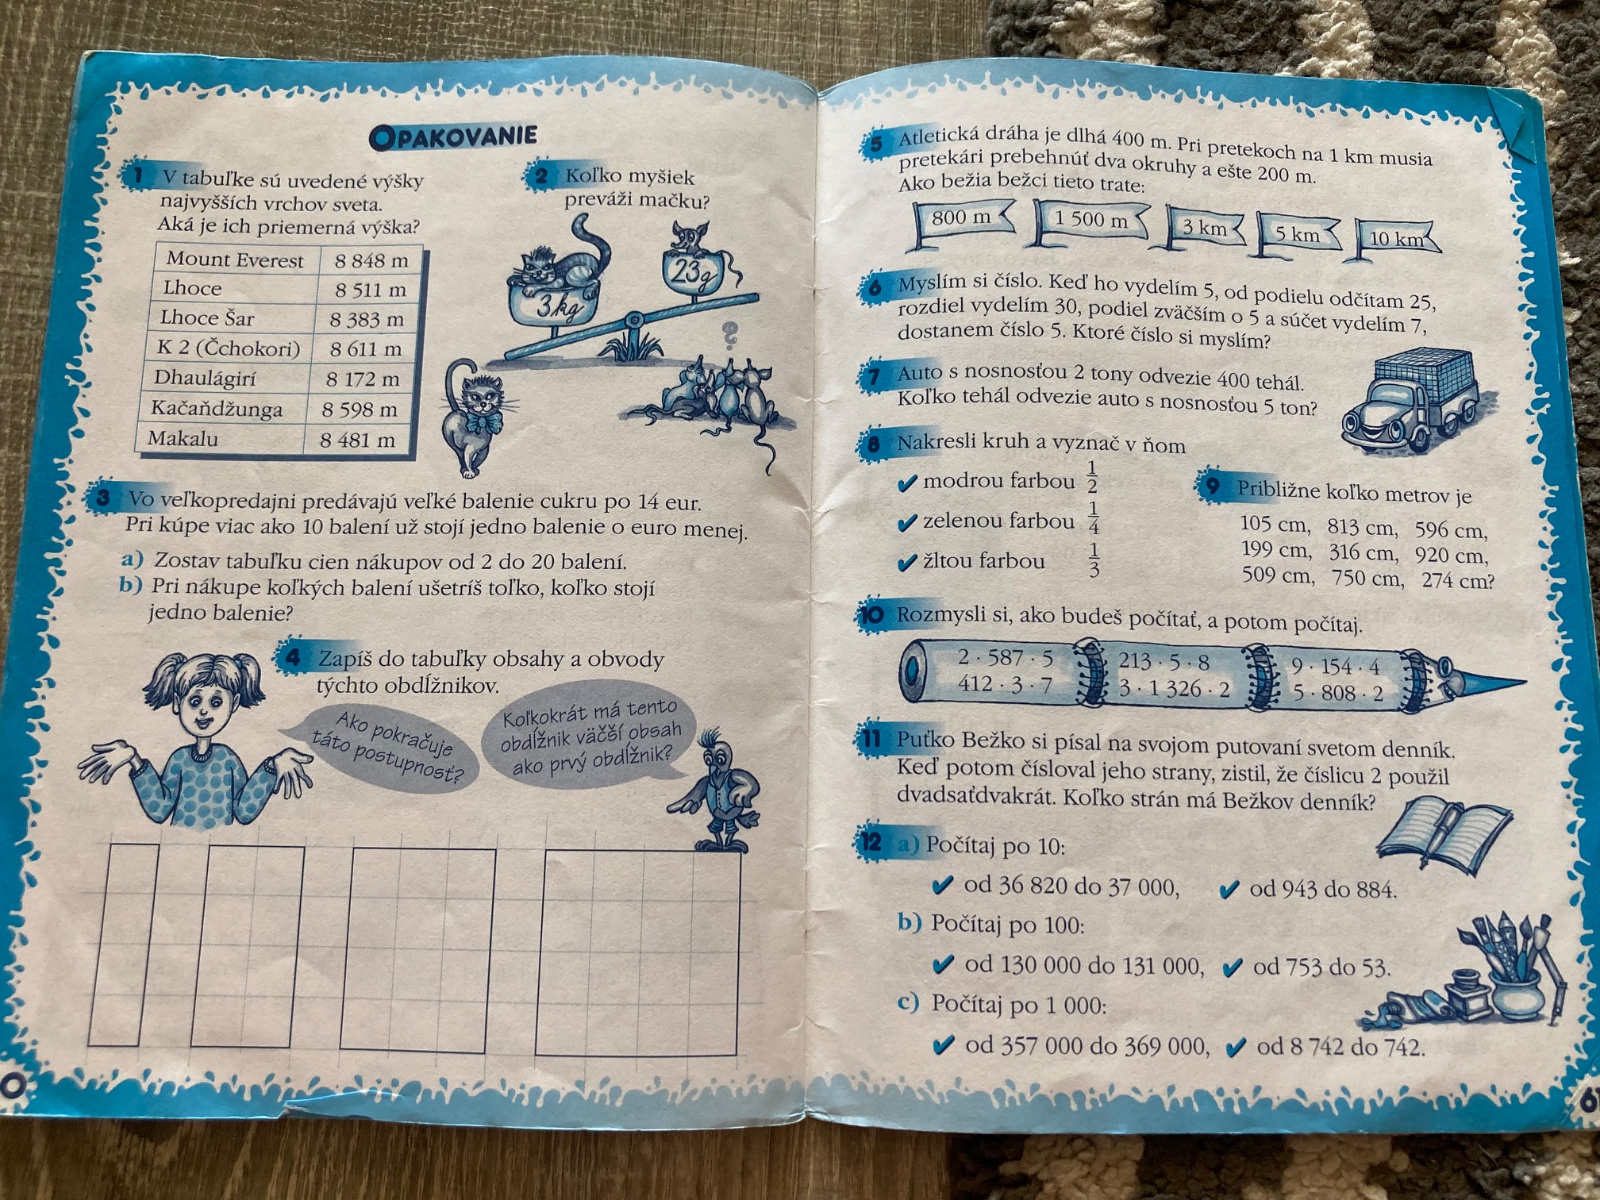 OPAKOVANIE
1 V tabuľke sú uvedené výšky
najvyšších vrchov sveta.
Aká je ich priemerná výška?
Mount Everest 8 848 m
Lhoce 8 511 m
Lhoce Šar 8 383 m
K 2 (Čchokori) 8 611 m
Dhaulágirí 8 172 m
Kačaňdžunga 8 598 m
Makalu 8 481 m
2 Koľko myšiek
preváži mačku?
3kg
23g
?
3 Vo veľkopredajni predávajú veľké balenie cukru po 14 eur.
Pri kúpe viac ako 10 balení už stojí jedno balenie o euro menej.
a) Zostav tabuľku cien nákupov od 2 do 20 balení.
b) Pri nákupe koľkých balení ušetríš toľko, koľko stojí
jedno balenie?
4 Zapíš do tabuľky obsahy a obvody
týchto obdĺžnikov.
Ako pokračuje
táto postupnosť?
Koľkokrát má tento
obdĺžnik väčší obsah
ako prvý obdĺžnik?
0
5 Atletická dráha je dlhá 400 m. Pri pretekoch na 1 km musia
pretekári prebehnúť dva okruhy a ešte 200 m.
Ako bežia bežci tieto trate:
800 m 1 500 m 3 km 5 km 10 km
6 Myslím si číslo. Keď ho vydelím 5, od podielu odčítam 25,
rozdiel vydelím 30, podiel zväčším o 5 a súčet vydelím 7,
dostanem číslo 5. Ktoré číslo si myslím?
7 Auto s nosnosťou 2 tony odvezie 400 tehál.
Koľko tehál odvezie auto s nosnosťou 5 ton?
8 Nakresli kruh a vyznač v ňom
✔ modrou farbou 1/2
✔ zelenou farbou 1/4
✔ žltou farbou 1/3
9 Približne koľko metrov je
105 cm, 813 cm, 596 cm,
199 cm, 316 cm, 920 cm,
509 cm, 750 cm, 274 cm?
10 Rozmysli si, ako budeš počítať, a potom počítaj.
2 · 587 · 5 213 · 5 · 8 9 · 154 · 4
412 · 3 · 7 3 · 1 326 · 2 5 · 808 · 2
11 Puťko Bežko si písal na svojom putovaní svetom denník.
Keď potom čísloval jeho strany, zistil, že číslicu 2 použil
dvadsaťdvakrát. Koľko strán má Bežkov denník?
12 a) Počítaj po 10:
✔ od 36 820 do 37 000, ✔ od 943 do 884.
b) Počítaj po 100:
✔ od 130 000 do 131 000, ✔ od 753 do 53.
c) Počítaj po 1 000:
✔ od 357 000 do 369 000, ✔ od 8 742 do 742.
61